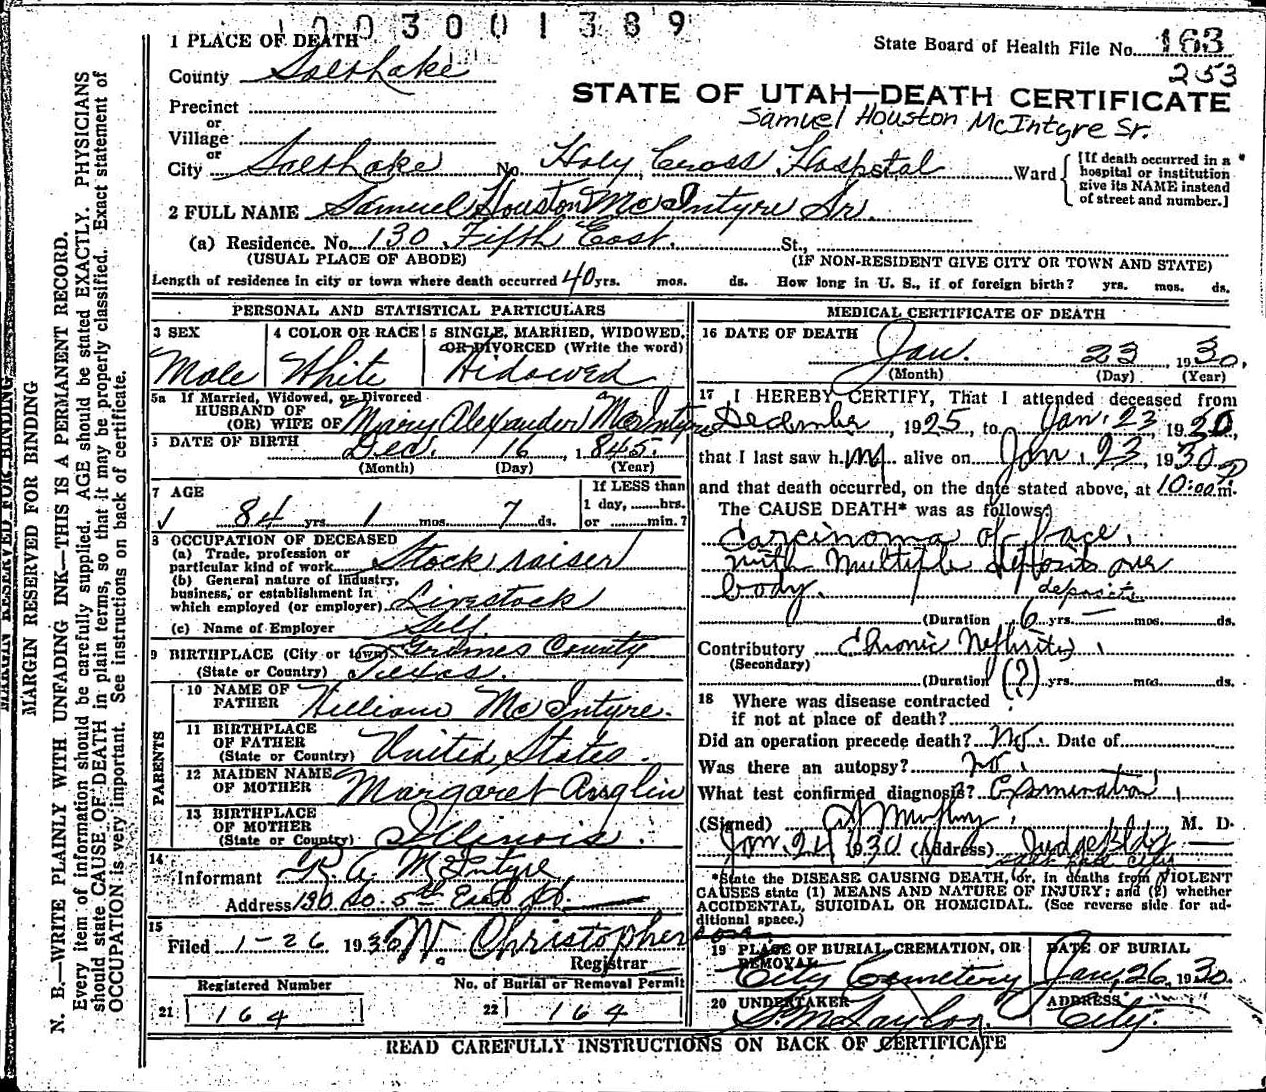 1003001389
1 PLACE OF DEATH
State Board of Health File No. 163
253
County Salt Lake
STATE OF UTAH—DEATH CERTIFICATE
Samuel Houston McIntyre Sr.
Precinct
or
Village
or
City Salt Lake No. Holy Cross Hospital Ward
[If death occurred in a hospital or institution give its NAME instead of street and number.]
2 FULL NAME Samuel Houston McIntyre Sr.
(a) Residence. No. 130 Fifth East. St.,
(USUAL PLACE OF ABODE) (IF NON-RESIDENT GIVE CITY OR TOWN AND STATE)
Length of residence in city or town where death occurred 40 yrs. mos. ds. How long in U. S., if of foreign birth? yrs. mos. ds.
PERSONAL AND STATISTICAL PARTICULARS
3 SEX
Male
4 COLOR OR RACE
White
5 SINGLE, MARRIED, WIDOWED, OR DIVORCED (Write the word)
Widowed
5a If Married, Widowed, or Divorced
HUSBAND OF
(OR) WIFE OF Mary Alexander McIntyre
6 DATE OF BIRTH Dec. 16, 1845.
(Month) (Day) (Year)
7 AGE
84 yrs. 1 mos. 7 ds.
If LESS than
1 day, hrs.
or min.?
8 OCCUPATION OF DECEASED
(a) Trade, profession or
particular kind of work Stock raiser
(b) General nature of industry,
business, or establishment in
which employed (or employer) Livestock
(c) Name of Employer Self
9 BIRTHPLACE (City or town) Grimes County
(State or Country) Texas.
PARENTS
10 NAME OF
FATHER William McIntyre.
11 BIRTHPLACE
OF FATHER
(State or Country) United States.
12 MAIDEN NAME
OF MOTHER Margaret Anglin
13 BIRTHPLACE
OF MOTHER
(State or Country) Illinois.
14
Informant R. A. McIntyre
Address 130 So. 5th East St.
15
Filed 1-26 1930 W. Christopherson
Registrar
Registered Number
21 164
No. of Burial or Removal Permit
22 164
MEDICAL CERTIFICATE OF DEATH
16 DATE OF DEATH
Jan. 23, 1930.
(Month) (Day) (Year)
17 I HEREBY CERTIFY, That I attended deceased from
December, 1925, to Jan. 23 1930,
that I last saw him alive on Jan. 23, 1930
and that death occurred, on the date stated above, at 10:00 P m.
The CAUSE DEATH* was as follows:
Carcinoma of face,
with multiple deposits over
body. deposits
(Duration 6 yrs. — mos. ds.
Contributory Chronic Nephritis.
(Secondary)
(Duration (?) yrs. mos. ds.
18 Where was disease contracted
if not at place of death?
Did an operation precede death? No. Date of
Was there an autopsy? no.
What test confirmed diagnosis? Examination.
(Signed) Murphy, M. D.
Jan 24 1930 (Address) Judge Bldg
Salt Lake City
*State the DISEASE CAUSING DEATH, or, in deaths from VIOLENT
CAUSES state (1) MEANS AND NATURE OF INJURY; and (2) whether
ACCIDENTAL, SUICIDAL OR HOMICIDAL. (See reverse side for ad-
ditional space.)
19 PLACE OF BURIAL, CREMATION, OR REMOVAL
City Cemetery
DATE OF BURIAL
Jan. 26, 1930.
20 UNDERTAKER
S. M. Taylor.
ADDRESS
City.
READ CAREFULLY INSTRUCTIONS ON BACK OF CERTIFICATE
MARGIN RESERVED FOR BINDING
MARGIN RESERVED FOR BINDING
N. B.—WRITE PLAINLY WITH UNFADING INK—THIS IS A PERMANENT RECORD.
Every item of information should be carefully supplied. AGE should be stated EXACTLY. PHYSICIANS
should state CAUSE OF DEATH in plain terms, so that it may be properly classified. Exact statement of
OCCUPATION is very important. See instructions on back of certificate.